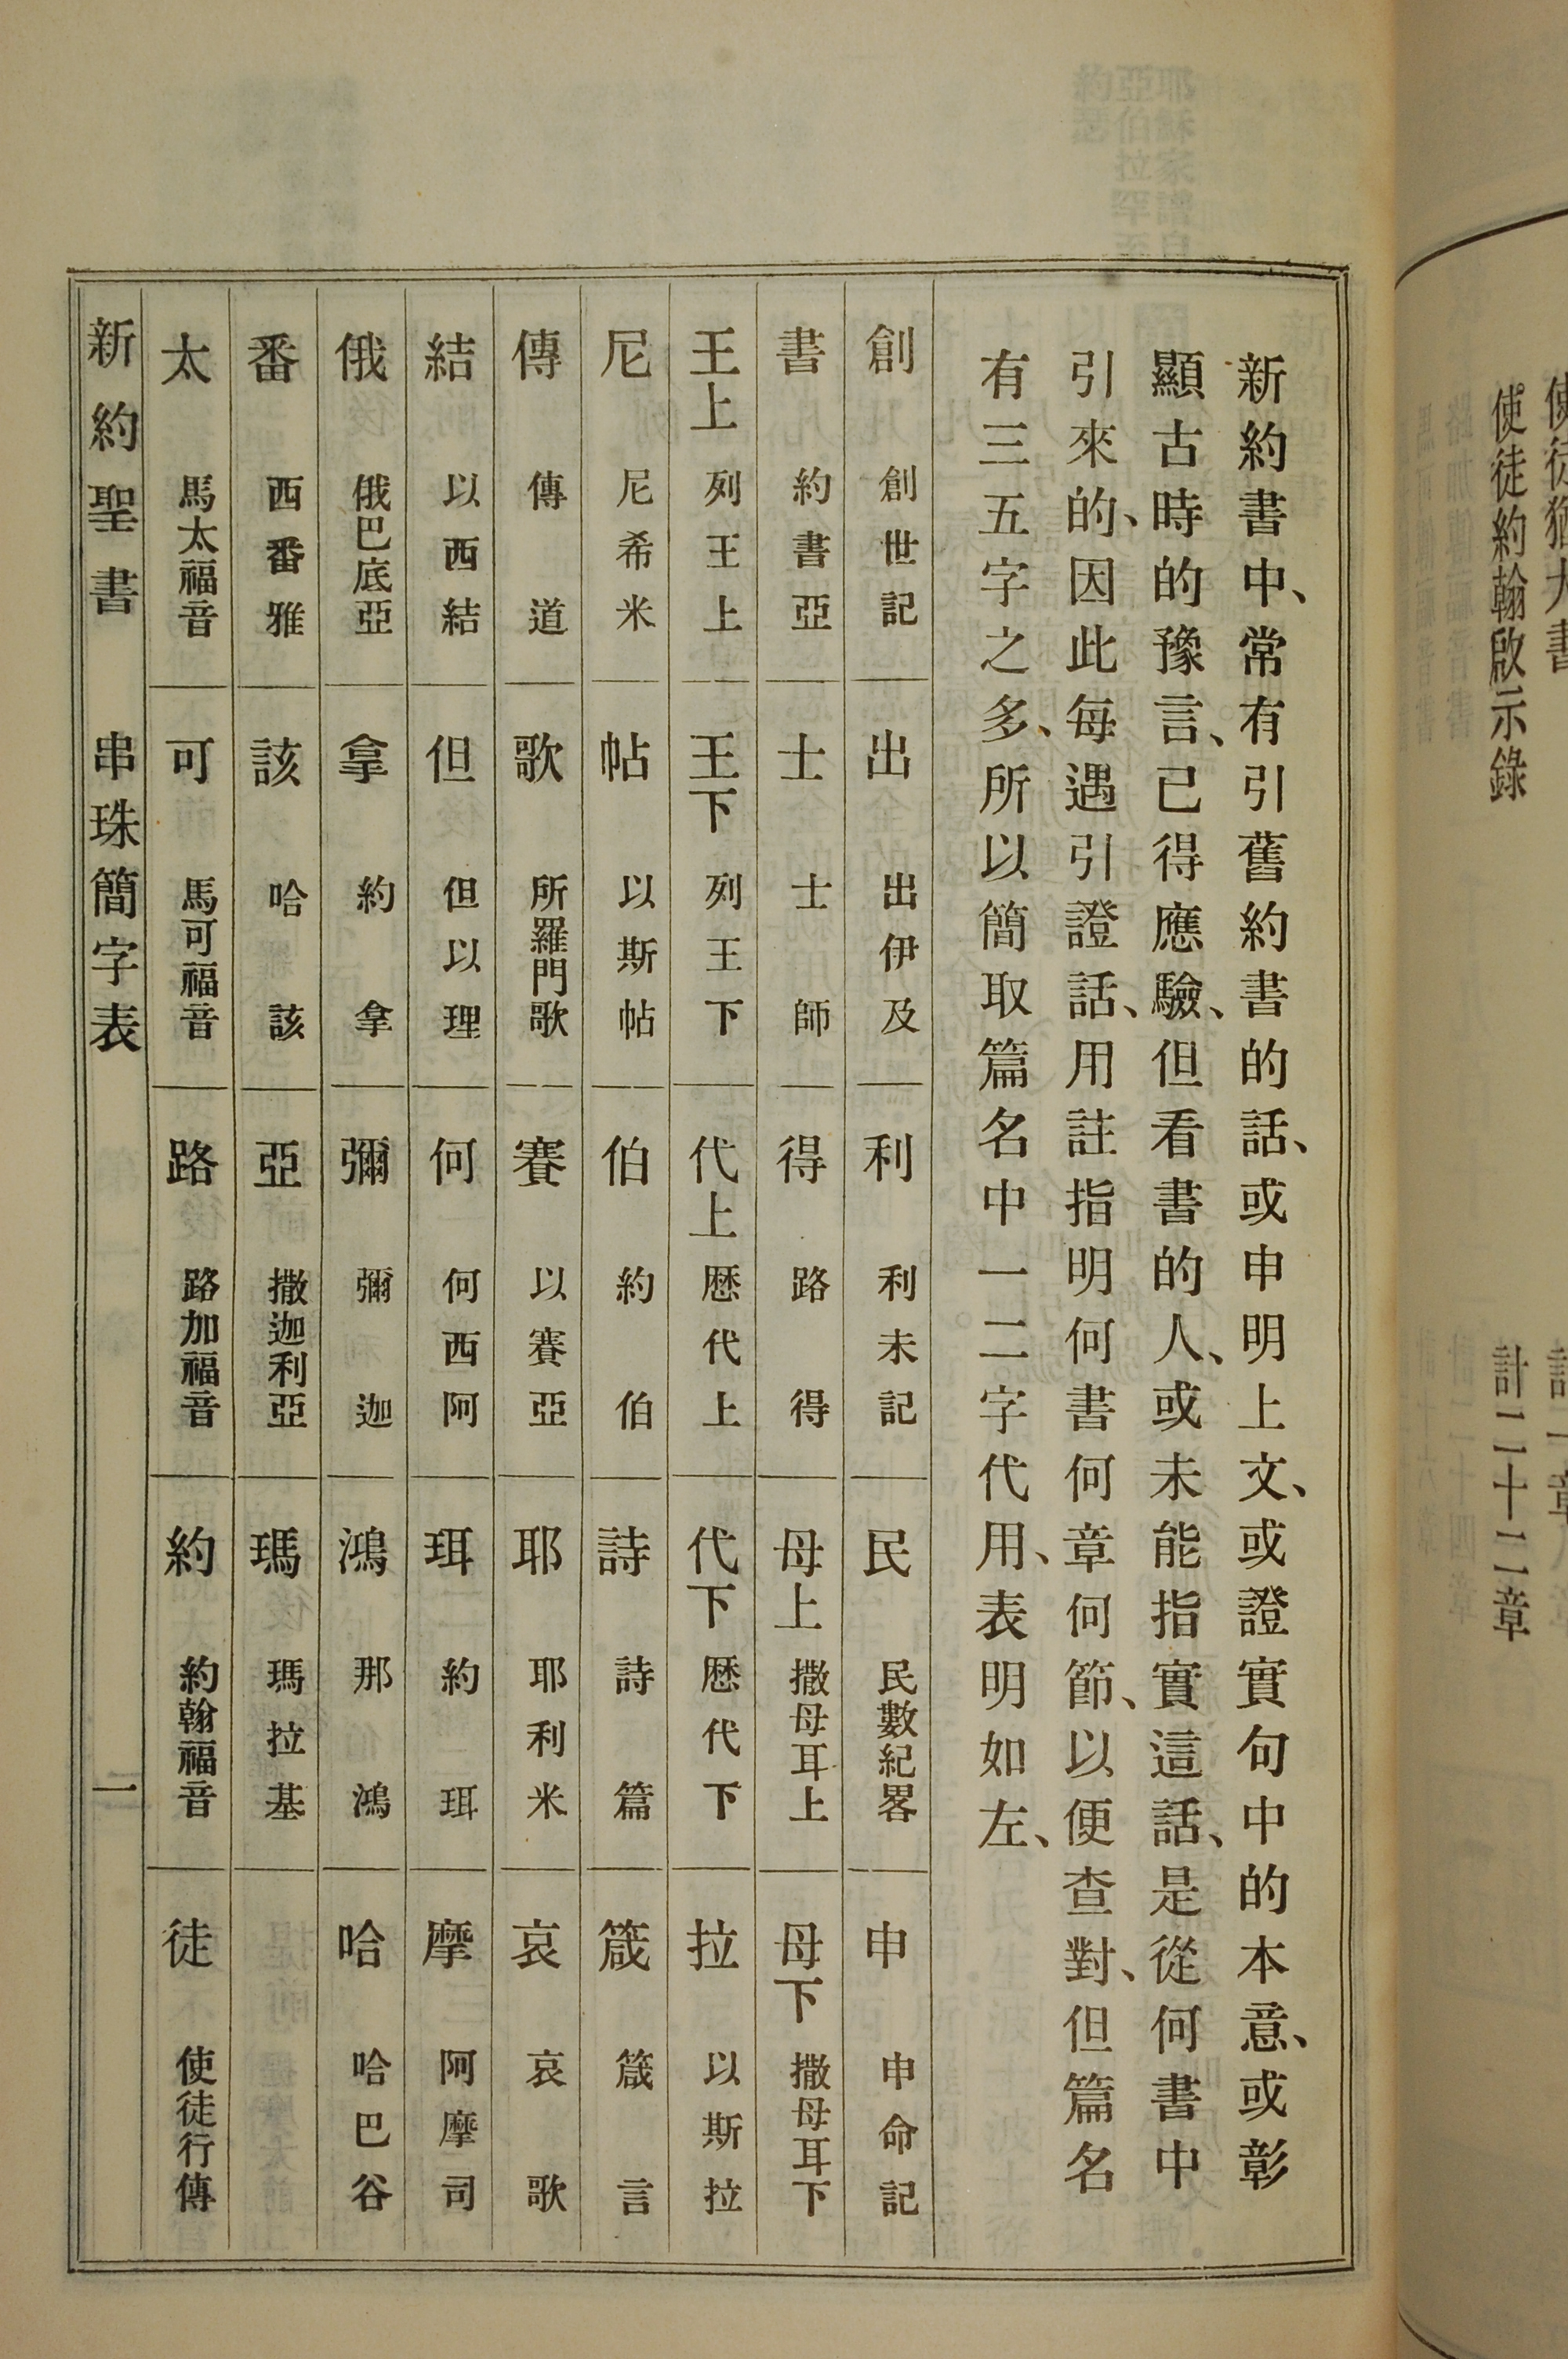 使徒約翰啟示錄 計二十二章
新約書中、常有引舊約書的話、或申明上文、或證實句中的本意、或彰
顯古時的豫言、已得應驗、但看書的人、或未能指實這話、是從何書中
引來的、因此每遇引證話、用註指明何書何章何節、以便查對、但篇名
有三五字之多、所以簡取篇名中一二字代用、表明如左、
創 創世記 出 出伊及 利 利未記 民 民數紀畧 申 申命記
書 約書亞 士 士師 得 路得 母上 撒母耳上 母下 撒母耳下
王上 列王上 王下 列王下 代上 歷代上 代下 歷代下 拉 以斯拉
尼 尼希米 帖 以斯帖 伯 約伯 詩 詩篇 箴 箴言
傳 傳道 歌 所羅門歌 賽 以賽亞 耶 耶利米 哀 哀歌
結 以西結 但 但以理 何 何西阿 珥 約珥 摩 阿摩司
俄 俄巴底亞 拿 約拿 彌 彌迦 鴻 那鴻 哈 哈巴谷
番 西番雅 該 哈該 亞 撒迦利亞 瑪 瑪拉基
太 馬太福音 可 馬可福音 路 路加福音 約 約翰福音 徒 使徒行傳
新約聖書 串珠簡字表 一